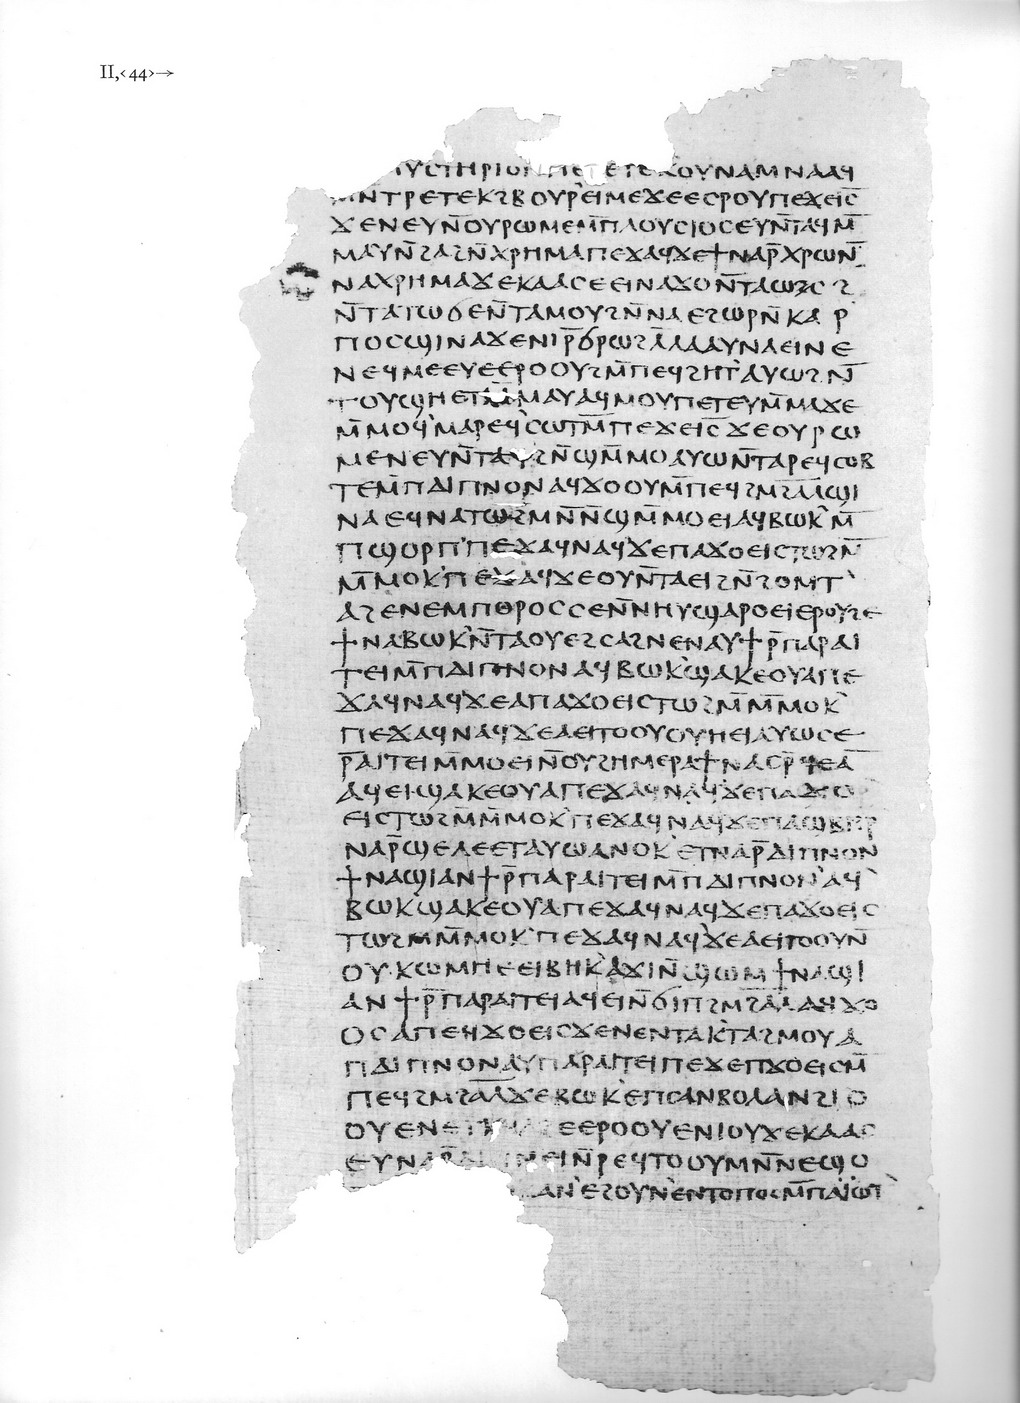 II,‹44›→
ⲙⲩⲥⲧⲏⲣⲓⲟⲛ ⲡⲉⲧⲉⲧⲉⲕⲟⲩⲛⲁⲙ ⲛⲁⲁϥ
ⲙⲛⲧⲣⲉⲧⲉⲕϩⲃⲟⲩⲣ ⲉⲓⲙⲉ ϫⲉ ⲉⲥⲣ ⲟⲩ ⲡⲉϫⲉ ⲓ̅ⲥ̅
ϫⲉ ⲛⲉⲩⲛ̅ ⲟⲩⲣⲱⲙⲉ ⲙ̅ⲡⲗⲟⲩⲥⲓⲟⲥ ⲉⲩⲛ̅ⲧⲁϥ ⲙ̅
ⲙⲁⲩ ⲛ̅ϩⲁϩ ⲛ̅ⲭⲣⲏⲙⲁ ⲡⲉϫⲁϥ ϫⲉ ϯⲛⲁⲣ̅ⲭⲣⲱ ⲛ̅
ⲛⲁⲭⲣⲏⲙⲁ ϫⲉⲕⲁⲁⲥ ⲉⲉⲓⲛⲁϫⲟ ⲛ̅ⲧⲁⲱⲥϩ
ⲛ̅ⲧⲁⲧⲱϭⲉ ⲛ̅ⲧⲁⲙⲟⲩϩ ⲛ̅ⲛⲁⲉϩⲱⲣ ⲛ̅ⲕⲁⲣ
ⲡⲟⲥ ϣⲓⲛⲁ ϫⲉ ⲛⲓⲣ̅ ϭⲣⲱϩ ⲗ̅ⲗⲁⲁⲩ ⲛⲁⲉⲓ ⲛⲉ
ⲛⲉϥⲙⲉⲉⲩⲉ ⲉⲣⲟⲟⲩ ϩⲙ̅ ⲡⲉϥϩⲏⲧ ⲁⲩⲱ ϩⲛ̅
ⲧⲟⲩϣⲏ ⲉⲧⲙ̅ⲙⲁⲩ ⲁϥⲙⲟⲩ ⲡⲉⲧⲉⲩⲙ̅ ⲙⲁϫⲉ
ⲙ̅ⲙⲟϥ ⲙⲁⲣⲉϥⲥⲱⲧⲙ̅ ⲡⲉϫⲉ ⲓ̅ⲥ̅ ϫⲉ ⲟⲩⲣⲱ
ⲙⲉ ⲛⲉⲩⲛ̅ⲧⲁϥ ϩⲛ̅ϣⲙ̅ⲙⲟ ⲁⲩⲱ ⲛ̅ⲧⲁⲣⲉϥⲥⲟⲃ
ⲧⲉ ⲙ̅ⲡⲇⲓⲡⲛⲟⲛ ⲁϥϫⲟⲟⲩ ⲙ̅ⲡⲉϥϩⲙ̅ϩⲁ̅ⲗ̅ ϣⲓ
ⲛⲁ ⲉϥⲛⲁⲧⲱϩⲙ ⲛ̅ⲛ̅ϣⲙ̅ⲙⲟⲉⲓ ⲁϥⲃⲱⲕ ⲙ̅
ⲡϣⲟⲣⲡ ⲡⲉϫⲁϥ ⲛⲁϥ ϫⲉ ⲡⲁϫⲟⲉⲓⲥ ⲧⲱϩⲙ̅
ⲙ̅ⲙⲟⲕ ⲡⲉϫⲁϥ ϫⲉ ⲟⲩⲛ̅ⲧⲁⲉⲓ ϩⲛ̅ϩⲟⲙⲧ
ⲁϩⲉⲛⲉⲙⲡⲟⲣⲟⲥ ⲥⲉⲛ̅ⲛⲏⲩ ϣⲁⲣⲟⲉⲓ ⲉⲣⲟⲩϩⲉ
ϯⲛⲁⲃⲱⲕ ⲛ̅ⲧⲁⲟⲩⲉϩ ⲥⲁϩⲛⲉ ⲛⲁⲩ ϯⲣ̅ⲡⲁⲣⲁⲓ
ⲧⲉⲓ ⲙ̅ⲡⲇⲓⲡⲛⲟⲛ ⲁϥⲃⲱⲕ ϣⲁ ⲕⲉⲟⲩⲁ ⲡⲉ
ϫⲁϥ ⲛⲁϥ ϫⲉ ⲁⲡⲁϫⲟⲉⲓⲥ ⲧⲱϩⲙ̅ ⲙ̅ⲙⲟⲕ
ⲡⲉϫⲁϥ ⲛⲁϥ ϫⲉ ⲁⲉⲓⲧⲟⲟⲩ ⲟⲩⲏⲉⲓ ⲁⲩⲱ ⲥⲉ
ⲣ̅ⲁⲓⲧⲉⲓ ⲙ̅ⲙⲟⲉⲓ ⲛ̅ⲟⲩϩⲏⲙⲉⲣⲁ ϯⲛⲁⲥⲣ̅ϥⲉ ⲁ
ⲁϥⲉⲓ ϣⲁ ⲕⲉⲟⲩⲁ ⲡⲉϫⲁϥ ⲛⲁϥ ϫⲉ ⲡⲁϫⲟ
ⲉⲓⲥ ⲧⲱϩⲙ̅ ⲙ̅ⲙⲟⲕ ⲡⲉϫⲁϥ ⲛⲁϥ ϫⲉ ⲡⲁϣⲃⲏⲣ
ⲛⲁⲣ̅ ϣⲉⲗⲉⲉⲧ ⲁⲩⲱ ⲁⲛⲟⲕ ⲉⲧⲛⲁⲣ̅ ⲇⲓⲡⲛⲟⲛ
ϯⲛⲁϣⲓ ⲁⲛ ϯⲣ̅ⲡⲁⲣⲁⲓⲧⲉⲓ ⲙ̅ⲡⲇⲓⲡⲛⲟⲛ ⲁϥ
ⲃⲱⲕ ϣⲁ ⲕⲉⲟⲩⲁ ⲡⲉϫⲁϥ ⲛⲁϥ ϫⲉ ⲡⲁϫⲟⲉⲓⲥ
ⲧⲱϩⲙ ⲙ̅ⲙⲟⲕ ⲡⲉϫⲁϥ ⲛⲁϥ ϫⲉ ⲁⲉⲓⲧⲟⲟⲩ ⲛ̅
ⲟⲩⲕⲱⲙⲏ ⲉⲉⲓⲃⲏⲕ ⲁϫⲓ ⲛ̅ϣⲱⲙ ϯⲛⲁϣⲓ
ⲁⲛ ϯⲣ̅ⲡⲁⲣⲁⲓⲧⲉⲓ ⲁϥⲉⲓ ⲛ̅ϭⲓ ⲡϩⲙ̅ϩⲁ̅ⲗ̅ ⲁϥϫⲟ
ⲟⲥ ⲁⲡⲉϥϫⲟⲉⲓⲥ ϫⲉ ⲛⲉⲛⲧⲁⲕⲧⲁϩⲙⲟⲩ ⲁ
ⲡⲇⲓⲡⲛⲟⲛ ⲁⲩⲡⲁⲣⲁⲓⲧⲉⲓ ⲡⲉϫⲉ ⲡϫⲟⲉⲓⲥ ⲙ̅
ⲡⲉϥϩⲙ̅ϩⲁ̅ⲗ̅ ϫⲉ ⲃⲱⲕ ⲉⲡⲥⲁ ⲛⲃⲟⲗ ⲁⲛϩⲓⲟ
ⲟⲩⲉ ⲛⲉⲧⲕⲛⲁϩⲉ ⲉⲣⲟⲟⲩ ⲉⲛⲓⲟⲩ ϫⲉⲕⲁⲁⲥ
ⲉⲩⲛⲁⲣ̅ⲇⲓⲡⲛⲉⲓ ⲛ̅ⲣⲉϥⲧⲟⲟⲩ ⲙⲛ̅ ⲛⲉϣⲟ
ⲁⲛ ⲉϩⲟⲩⲛ ⲉⲛⲧⲟⲡⲟⲥ ⲙ̅ⲡⲁⲓⲱⲧ